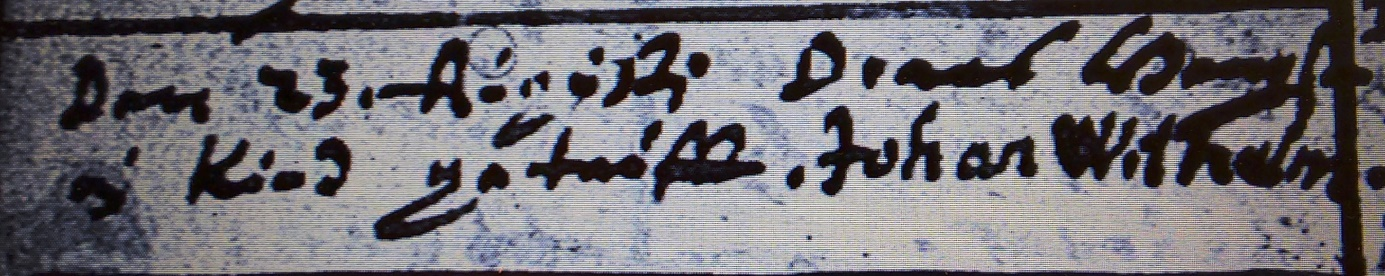 Den 23. Augusti Dauid
ei Kind getaufft. Johan Wilhelm.